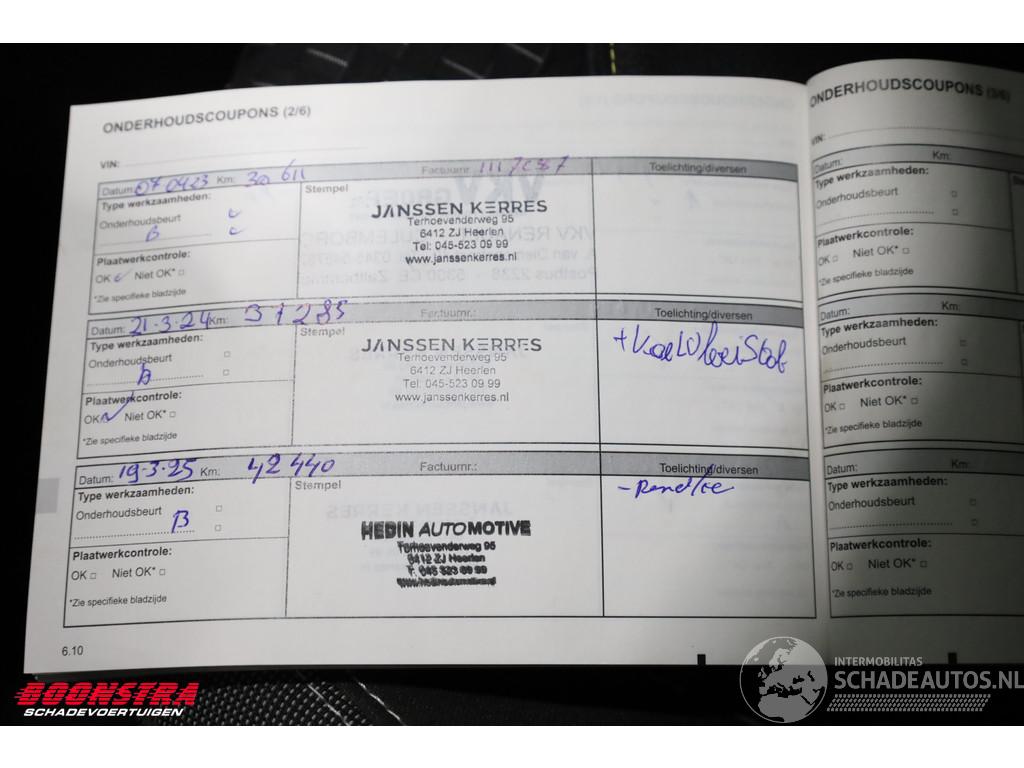 ONDERHOUDSCOUPONS (2/6)
VIN:
Datum: 07 04 23 Km: 30 611 Factuurnr. Toelichting/diversen
Type werkzaamheden:
Onderhoudsbeurt
B
Stempel
JANSSEN KERRES
Terhoevenderweg 95
6412 ZJ Heerlen
Tel: 045-523 09 99
www.janssenkerres.nl
Plaatwerkcontrole:
OK Niet OK*
*Zie specifieke bladzijde
Datum: 21-3-24 Km: 37 285 Factuurnr.: Toelichting/diversen
Type werkzaamheden:
Onderhoudsbeurt
A
Stempel
JANSSEN KERRES
Terhoevenderweg 95
6412 ZJ Heerlen
Tel: 045-523 09 99
www.janssenkerres.nl
Plaatwerkcontrole:
OK Niet OK*
*Zie specifieke bladzijde
Datum: 19-3-25 Km: 42 440 Factuurnr.: Toelichting/diversen
Type werkzaamheden:
Onderhoudsbeurt
B
Stempel
HEDIN AUTOMOTIVE
Terhoevenderweg 95
6412 ZJ Heerlen
T: 045 523 09 99
www.hedinautomotive.nl
Plaatwerkcontrole:
OK Niet OK*
*Zie specifieke bladzijde
6.10
ONDERHOUDSCOUPONS (3/6)
VIN:
Datum: Km:
Type werkzaamheden:
Onderhoudsbeurt
Plaatwerkcontrole:
OK Niet OK*
*Zie specifieke bladzijde
Datum: Km:
Type werkzaamheden:
Onderhoudsbeurt
Plaatwerkcontrole:
OK Niet OK*
*Zie specifieke bladzijde
Datum: Km:
Type werkzaamheden:
Onderhoudsbeurt
Plaatwerkcontrole:
OK Niet OK*
*Zie specifieke bladzijde
BOONSTRA
SCHADEVOERTUIGEN
INTERMOBILITAS
SCHADEAUTOS.NL